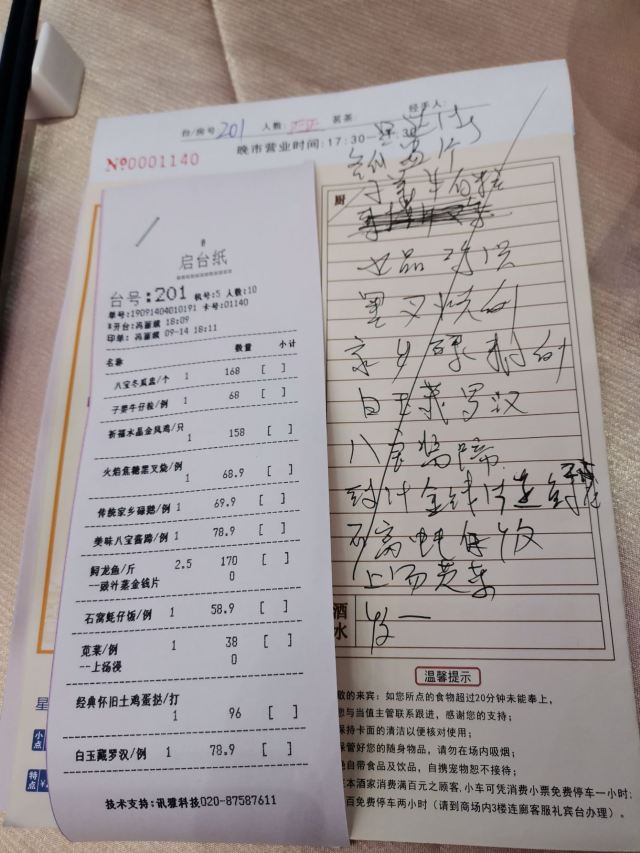 台/房号 201 人数: 茗茶 经手人:
№0001140
晚市营业时间:17:30-21:30
启台纸
台号:201 机号:5 人数:10
单号:19091404010191 卡号:01140
*开台: 冯丽嫦 18:09
印单: 冯丽嫦 09-14 18:11
名称 数量 小计
八宝冬瓜盅/个 1 168 [ ]
子姜牛仔粒/例 1 68 [ ]
祈福水晶金凤鸡/只
1 158 [ ]
火焰焦糖黑叉烧/例
1 68.9 [ ]
传统家乡碌鹅/例 1 69.9 [ ]
美味八宝酱蹄/例 1 78.9 [ ]
鲟龙鱼/斤 2.5 170 [ ]
--豉汁蒸金钱片 0
石窝蚝仔饭/例 1 58.9 [ ]
苋菜/例 1 38 [ ]
--上汤浸 0
经典怀旧土鸡蛋挞/打
1 96 [ ]
白玉藏罗汉/例 1 78.9 [ ]
技术支持:讯雅科技020-87587611
厨
黑叉烧例
白玉藏罗汉
八宝酱蹄
石窝蚝仔饭
上汤苋菜
酒水
温馨提示
敬的来宾: 如您所点的食物超过20分钟未能奉上,
您与当值主管联系跟进, 感谢您的支持;
保持卡面的清洁以便核对使用;
保管好您的随身物品, 请勿在场内吸烟;
绝自带食品及饮品, 自携宠物恕不接待;
本酒家消费满百元之顾客, 小车可凭消费小票免费停车一小时;
百免费停车两小时 (请到商场内3楼连廊客服礼宾台办理) 。
星
小点
特点